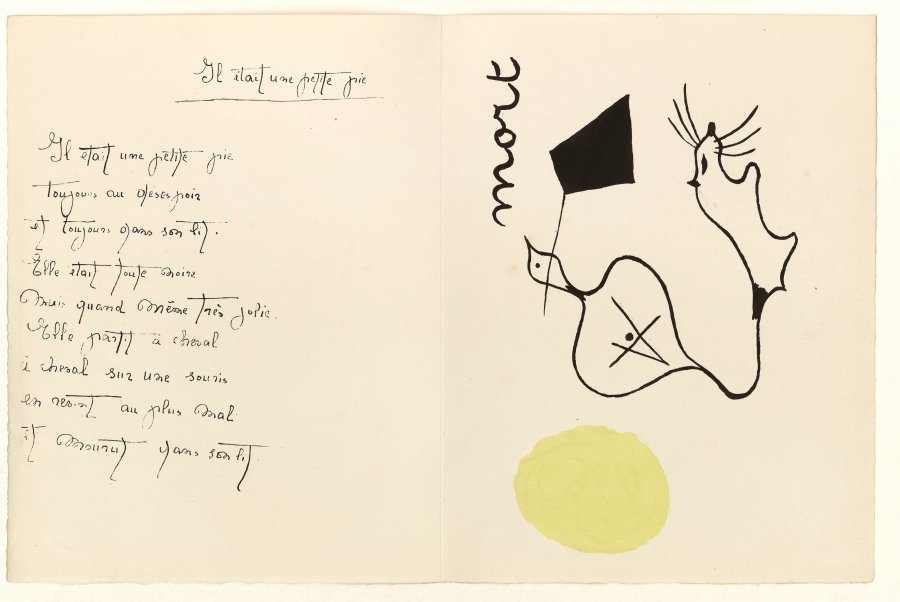 Il était une petite pie
Il était une petite pie
toujours au désespoir
et toujours dans son lit.
Elle était toute noire
Mais quand même très jolie.
Elle partit à cheval
à cheval sur une souris
en revint au plus mal
et mourut dans son lit
mort